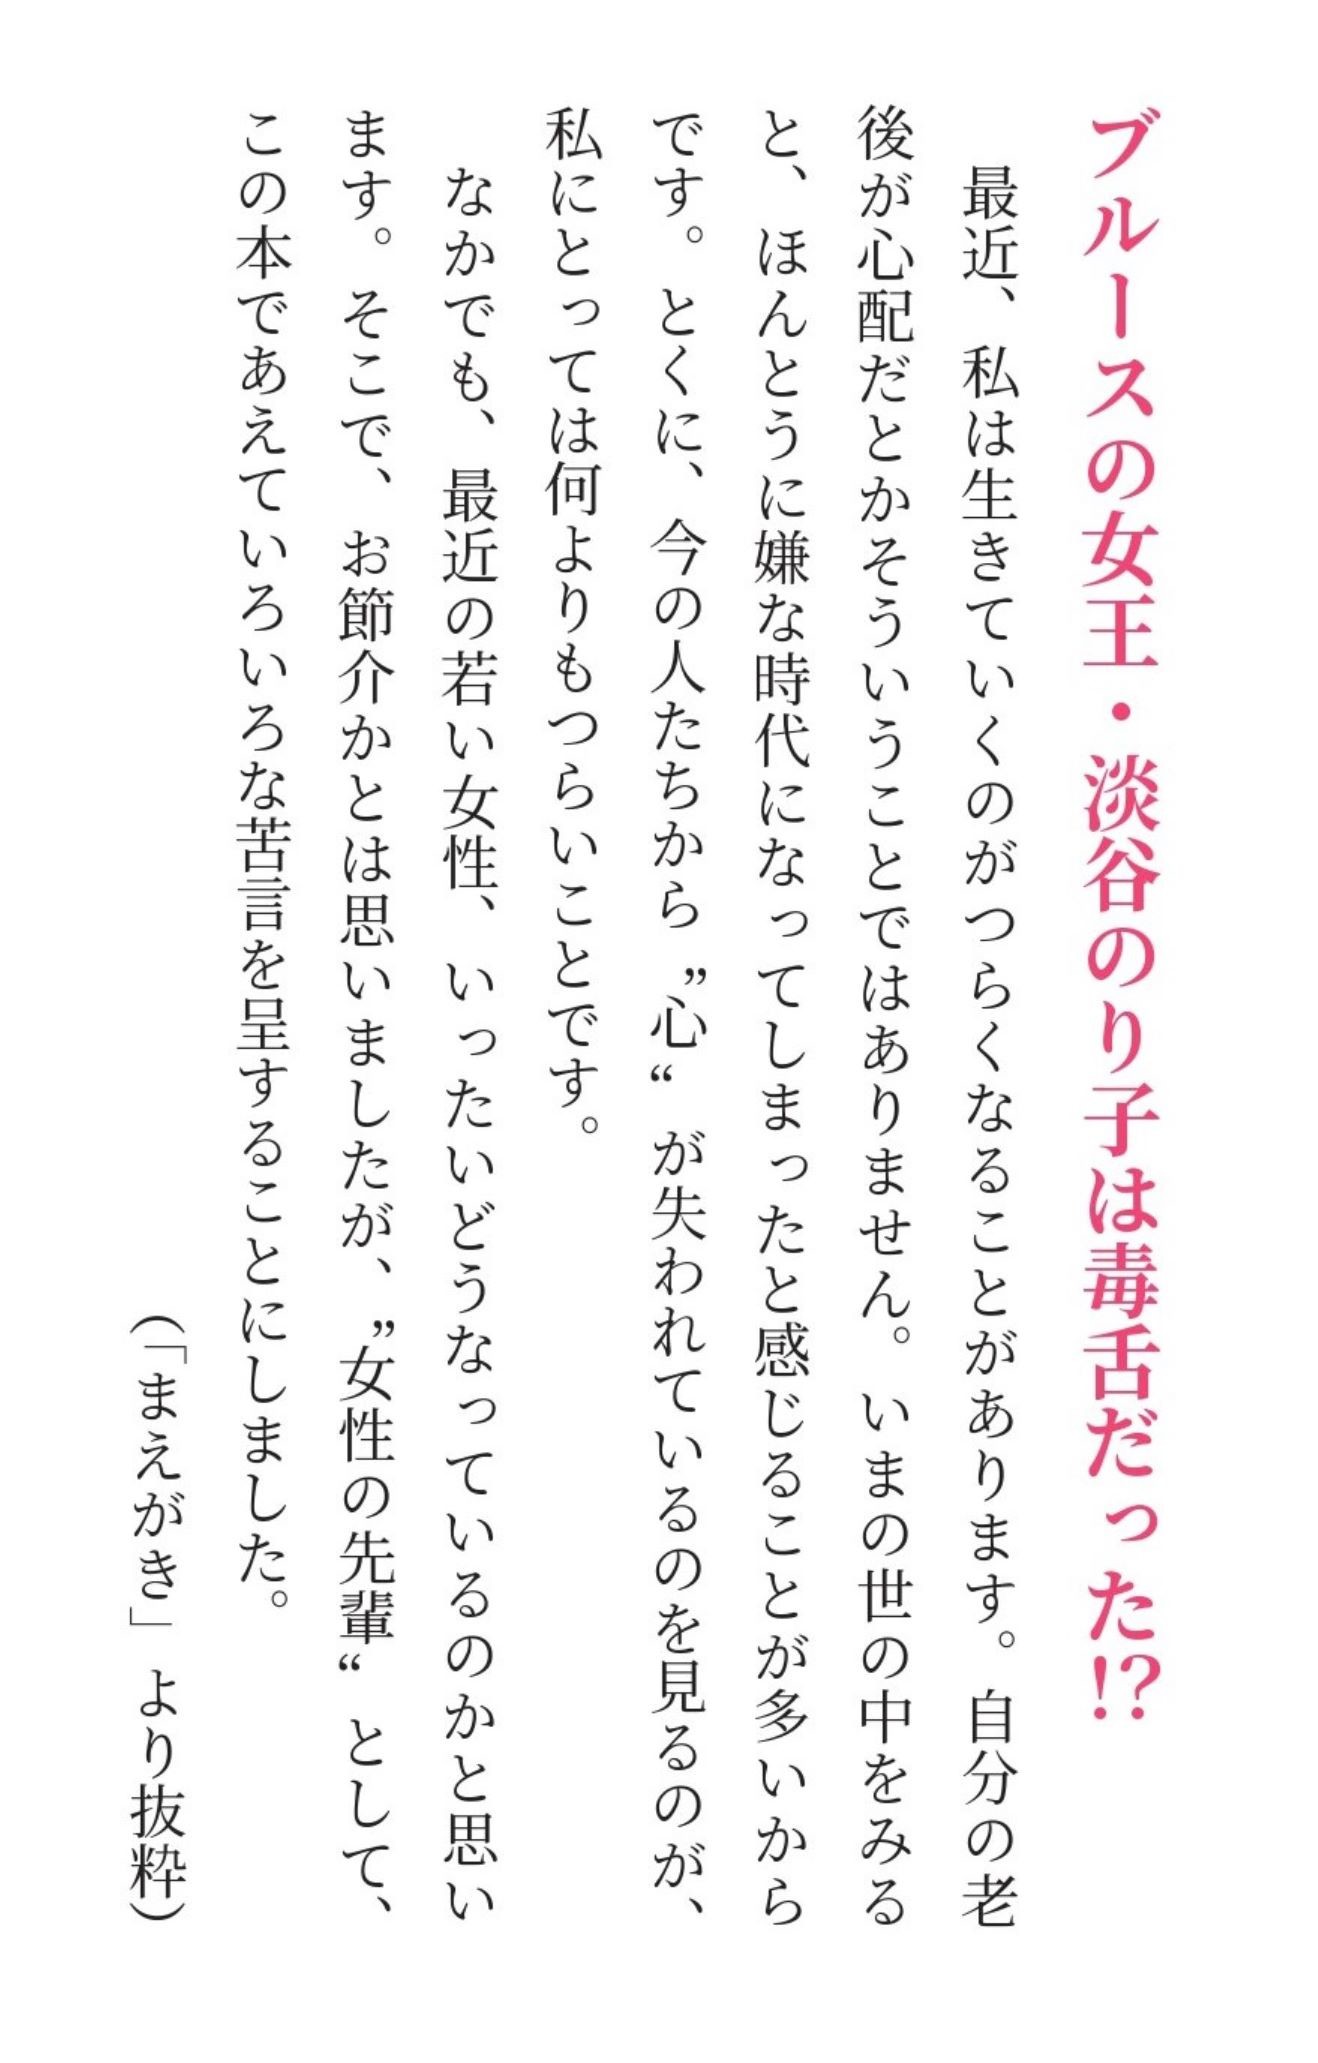 ブルースの女王・淡谷のり子は毒舌だった!?
　最近、私は生きていくのがつらくなることがあります。自分の老
後が心配だとかそういうことではありません。いまの世の中をみる
と、ほんとうに嫌な時代になってしまったと感じることが多いから
です。とくに、今の人たちから〝心〟が失われているのを見るのが、
私にとっては何よりもつらいことです。
　なかでも、最近の若い女性、いったいどうなっているのかと思い
ます。そこで、お節介かとは思いましたが、〝女性の先輩〟として、
この本であえていろいろな苦言を呈することにしました。
（「まえがき」より抜粋）